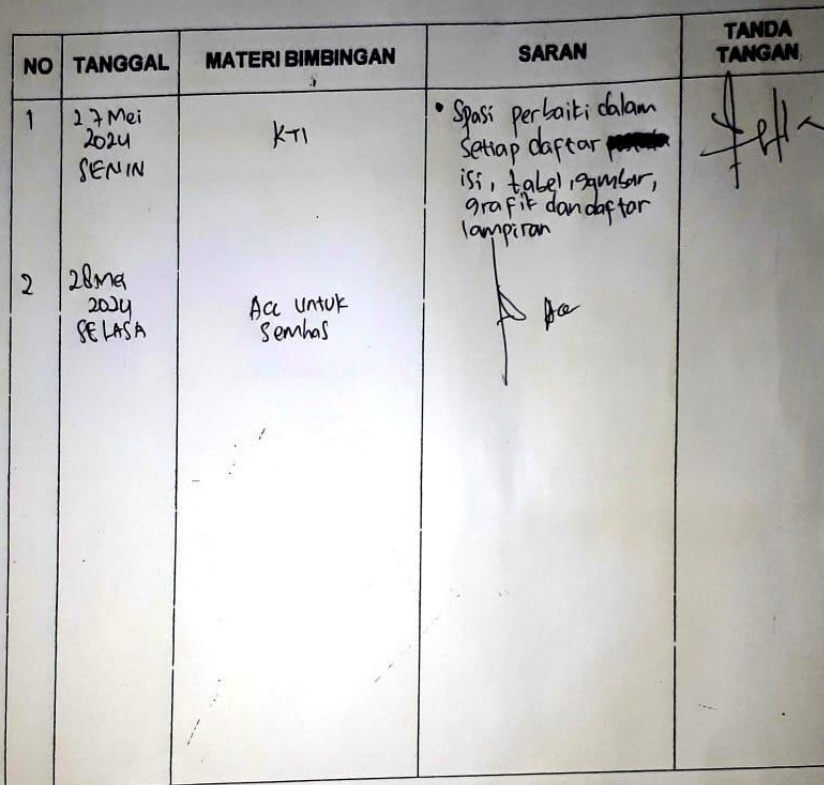 NO TANGGAL MATERI BIMBINGAN SARAN TANDA TANGAN
1
27 Mei
2024
SENIN
KTI
• Spasi perbaiki dalam
setiap daftar
isi, tabel, gambar,
grafik dan daftar
lampiran
2
28 Mei
2024
SELASA
Acc untuk
Semhas
Acc